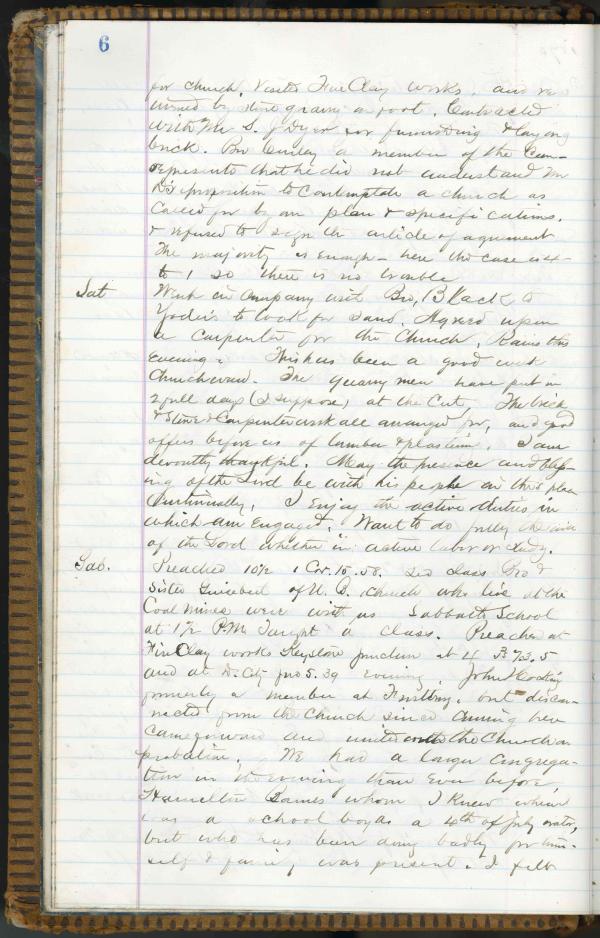 6
for church. Visited Fire Clay works, and re
by stone quarry on foot. Contracted
with Mr S. J Dyer for furnishing & laying
brick. Bro a member of the Com-
represents that he did not understand Mr
D's proposition to Contemplate a church as
Called for by our plan & specifications.
& refused to sign the article of agreement
The majority is enough - here the case is 4
to 1 so there is no trouble
Sat Went in Company with Bro, Black to
Yoder's to look for sand. Agreed upon
a carpenter for the Church. Rains this
evening. This has been a good week
Churchward. The quarry men have put in
2 full days (I suppose) at the Cut, The brick
& Stone & Carpenter work all arranged for, and good
offers before us of lumber & plastering. I am
devoutly thankful. May the presence and bless-
ing of the Lord be with his people in this place
Continually, I Enjoy the active duties in
which am Engaged. Want to do fully the will
of the Lord whether in active labor or study.
Sab. Preached 10½ 1 Cor. 15.58. Led class Bro &
Sister of U. B. Church who live at the
Coal Mines were with us Sabbath School
at 1½ P.M. Taught a class. Preached at
Fire Clay works Keystone Junction at 4 Ps 73.5
and at D. City Jno 5.39 evening. John
formerly a member at Frostburg, but discon-
nected from the Church since coming here
came forward and united with the Church on
probation. We had a larger Congrega-
tion in the evening than Ever before,
Hamilton Barnes whom I knew when
I was a school boy as a 4th of July orator,
but who has been doing badly for him-
self & family was present. I felt